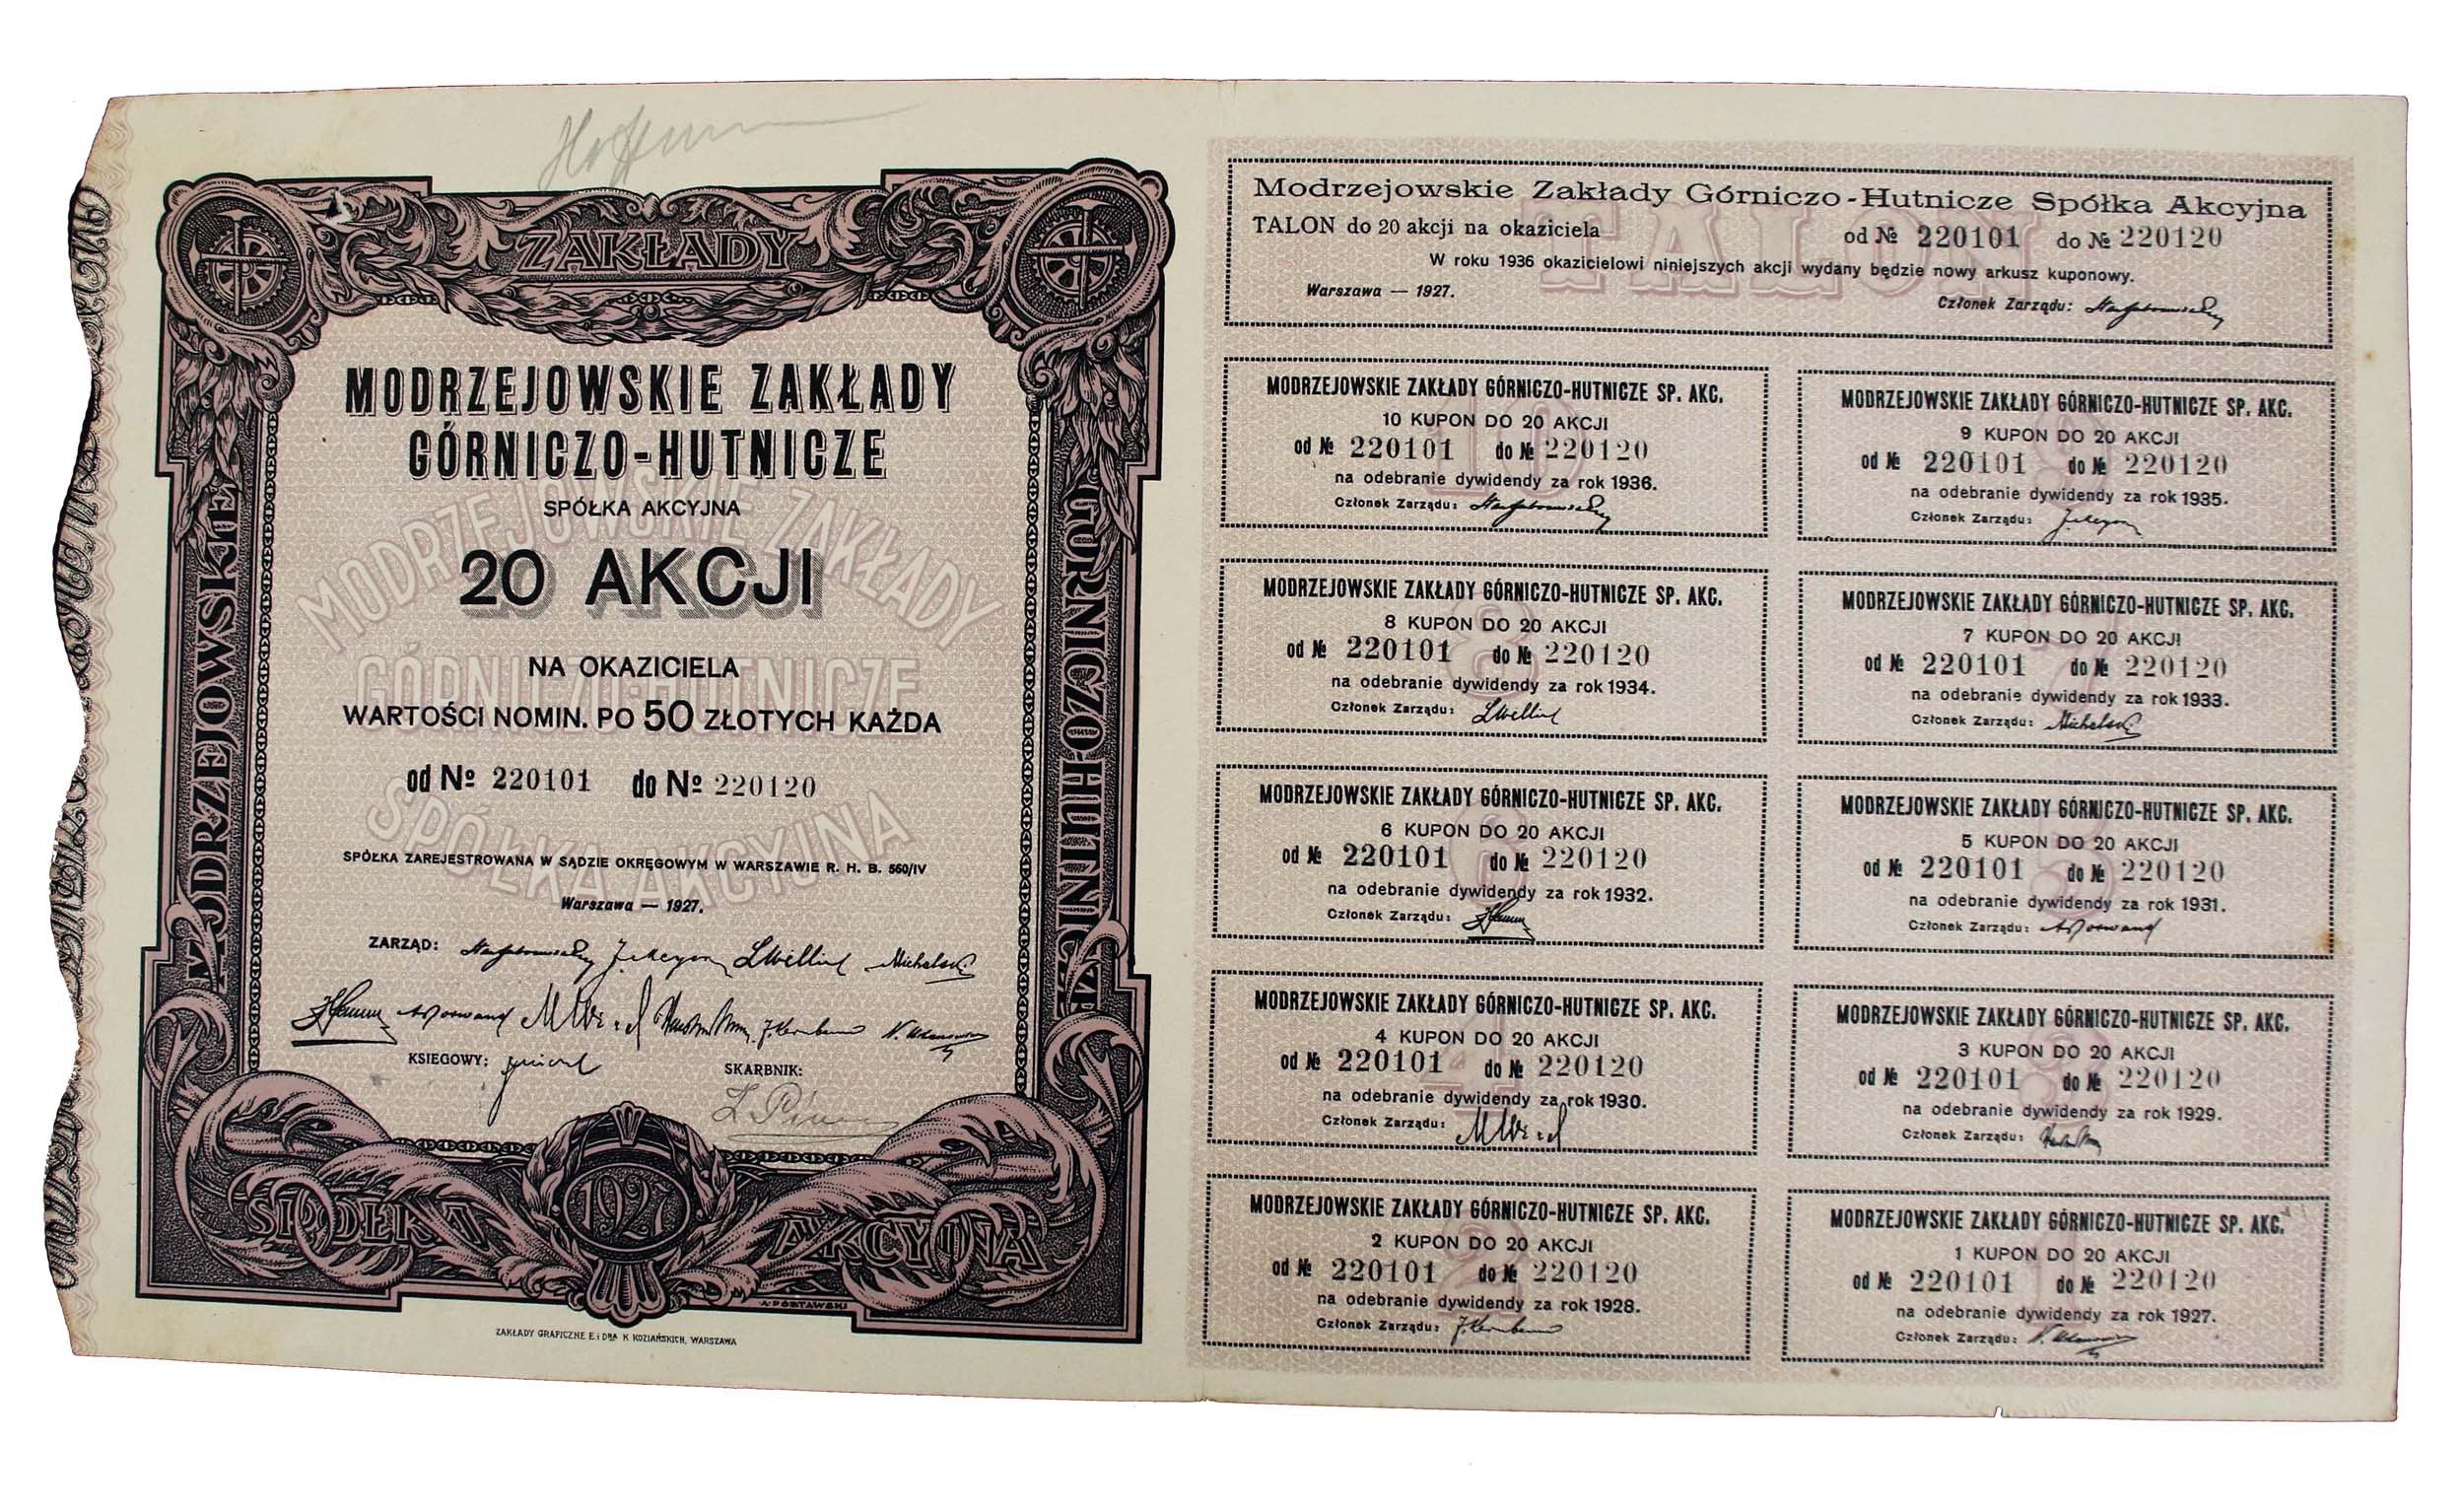 Hoffmann
ZAKŁADY
MODRZEJOWSKIE
GÓRNICZO-HUTNICZE
MODRZEJOWSKIE ZAKŁADY
GÓRNICZO-HUTNICZE
SPÓŁKA AKCYJNA
20 AKCJI
NA OKAZICIELA
WARTOŚCI NOMIN. PO 50 ZŁOTYCH KAŻDA
od № 220101 do № 220120
MODRZEJOWSKIE ZAKŁADY
GÓRNICZO-HUTNICZE
SPÓŁKA AKCYJNA
SPÓŁKA ZAREJESTROWANA W SĄDZIE OKRĘGOWYM W WARSZAWIE R. H. B. 560/IV
Warszawa — 1927.
ZARZĄD:
KSIEGOWY:
SKARBNIK:
SPÓŁKA 1927 AKCYJNA
A. PÓŁTAWSKI
ZAKŁADY GRAFICZNE E. i DRA K KOZIAŃSKICH, WARSZAWA
TALON
Modrzejowskie Zakłady Górniczo-Hutnicze Spółka Akcyjna
TALON do 20 akcji na okaziciela od № 220101 do № 220120
W roku 1936 okazicielowi niniejszych akcji wydany będzie nowy arkusz kuponowy.
Warszawa — 1927.
Członek Zarządu:
MODRZEJOWSKIE ZAKŁADY GÓRNICZO-HUTNICZE SP. AKC.
10 KUPON DO 20 AKCJI
od № 220101 do № 220120
na odebranie dywidendy za rok 1936.
Członek Zarządu:
MODRZEJOWSKIE ZAKŁADY GÓRNICZO-HUTNICZE SP. AKC.
9 KUPON DO 20 AKCJI
od № 220101 do № 220120
na odebranie dywidendy za rok 1935.
Członek Zarządu:
MODRZEJOWSKIE ZAKŁADY GÓRNICZO-HUTNICZE SP. AKC.
8 KUPON DO 20 AKCJI
od № 220101 do № 220120
na odebranie dywidendy za rok 1934.
Członek Zarządu:
MODRZEJOWSKIE ZAKŁADY GÓRNICZO-HUTNICZE SP. AKC.
7 KUPON DO 20 AKCJI
od № 220101 do № 220120
na odebranie dywidendy za rok 1933.
Członek Zarządu: Michelski
MODRZEJOWSKIE ZAKŁADY GÓRNICZO-HUTNICZE SP. AKC.
6 KUPON DO 20 AKCJI
od № 220101 do № 220120
na odebranie dywidendy za rok 1932.
Członek Zarządu:
MODRZEJOWSKIE ZAKŁADY GÓRNICZO-HUTNICZE SP. AKC.
5 KUPON DO 20 AKCJI
od № 220101 do № 220120
na odebranie dywidendy za rok 1931.
Członek Zarządu:
MODRZEJOWSKIE ZAKŁADY GÓRNICZO-HUTNICZE SP. AKC.
4 KUPON DO 20 AKCJI
od № 220101 do № 220120
na odebranie dywidendy za rok 1930.
Członek Zarządu:
MODRZEJOWSKIE ZAKŁADY GÓRNICZO-HUTNICZE SP. AKC.
3 KUPON DO 20 AKCJI
od № 220101 do № 220120
na odebranie dywidendy za rok 1929.
Członek Zarządu:
MODRZEJOWSKIE ZAKŁADY GÓRNICZO-HUTNICZE SP. AKC.
2 KUPON DO 20 AKCJI
od № 220101 do № 220120
na odebranie dywidendy za rok 1928.
Członek Zarządu:
MODRZEJOWSKIE ZAKŁADY GÓRNICZO-HUTNICZE SP. AKC.
1 KUPON DO 20 AKCJI
od № 220101 do № 220120
na odebranie dywidendy za rok 1927.
Członek Zarządu: